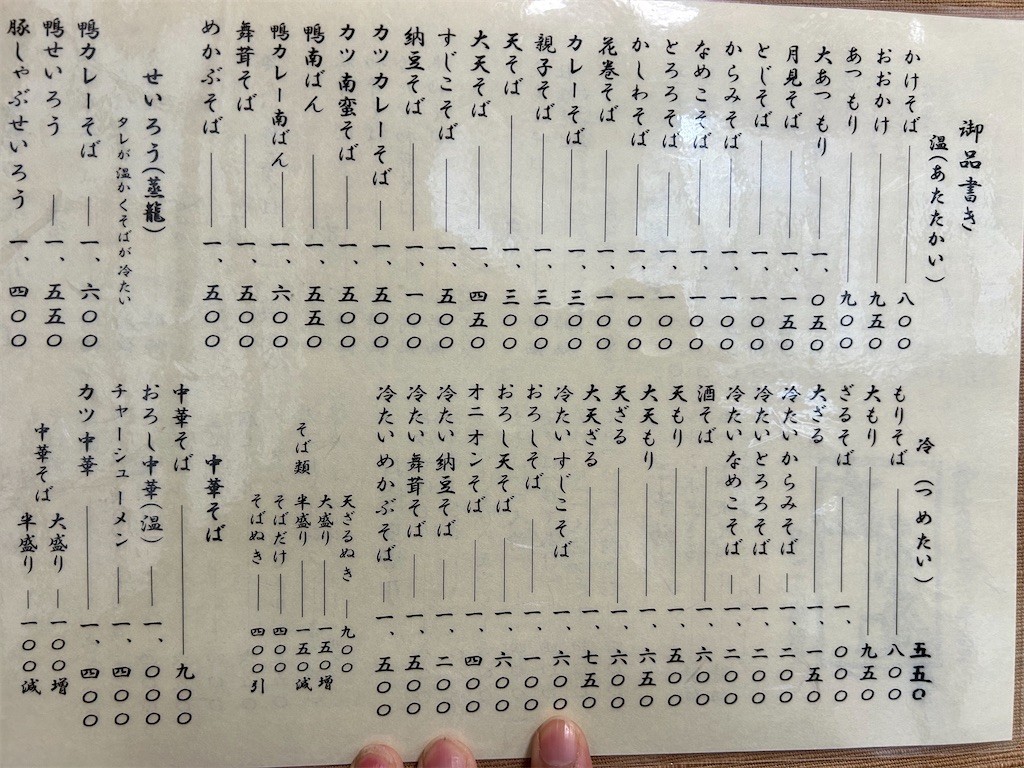 御品書き
温(あたたかい)
かけそば 八〇〇
おおかけ 九五〇
あつもり 九〇〇
大あつもり 一、〇五〇
月見そば 一、一五〇
とじそば 一、一〇〇
からみそば 一、一〇〇
なめこそば 一、一〇〇
とろろそば 一、一〇〇
かしわそば 一、一〇〇
花巻そば 一、一〇〇
カレーそば 一、三〇〇
親子そば 一、三〇〇
天そば 一、三〇〇
大天そば 一、四五〇
すじこそば 一、五〇〇
納豆そば 一、一〇〇
カツカレーそば 一、五〇〇
カツ南蛮そば 一、五〇〇
鴨南ばん 一、五五〇
鴨カレー南ばん 一、六〇〇
舞茸そば 一、五〇〇
めかぶそば 一、五〇〇
せいろう(蒸籠)
タレが温かくそばが冷たい
鴨カレーそば 一、六〇〇
鴨せいろう 一、五五〇
豚しゃぶせいろう 一、四〇〇
冷(つめたい)
五五〇
もりそば 八〇〇
大もり 九五〇
ざるそば 一、〇〇〇
大ざる 一、一五〇
冷たいからみそば 一、二〇〇
冷たいとろろそば 一、二〇〇
冷たいなめこそば 一、二〇〇
酒そば 一、六〇〇
天もり 一、五〇〇
大天もり 一、六五〇
天ざる 一、六〇〇
大天ざる 一、七五〇
冷たいすじこそば 一、六〇〇
おろしそば 一、一〇〇
おろし天そば 一、六〇〇
オニオンそば 一、四〇〇
冷たい納豆そば 一、二〇〇
冷たい舞茸そば 一、五〇〇
冷たいめかぶそば 一、五〇〇
天ざるぬき 九〇〇
そば類
大盛り 一五〇増
半盛り 一五〇減
そばだけ 四〇〇
そばぬき 四〇〇引
中華そば
中華そば 九〇〇
おろし中華(温) 一、〇〇〇
チャーシューメン 一、四〇〇
カツ中華 一、四〇〇
中華そば
大盛り 一〇〇増
半盛り 一〇〇減